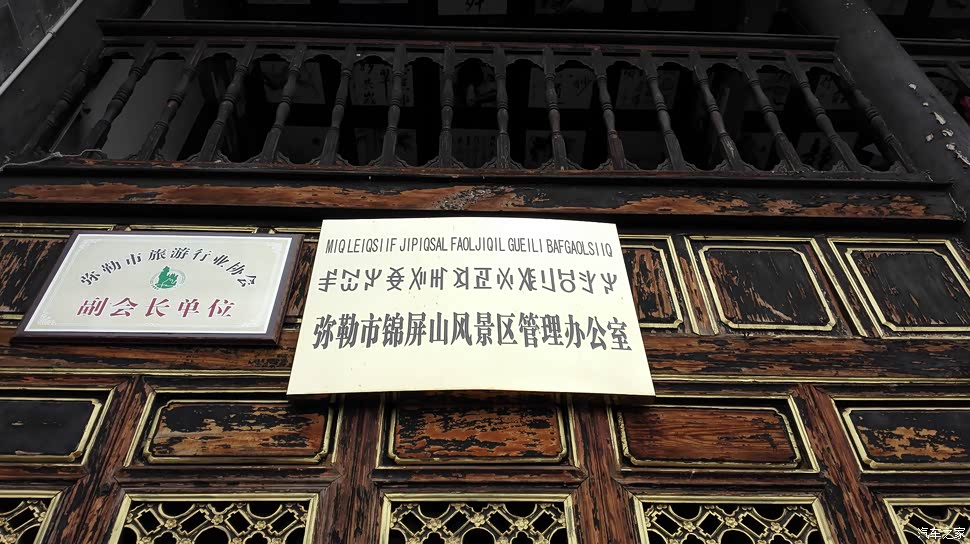 弥勒市旅游行业协会
副会长单位
MIQLEIQSIIF JIPIQSAL FAOLJIQIL GUEILI BAFGAOLSIIQ
弥勒市锦屏山风景区管理办公室
汽车之家